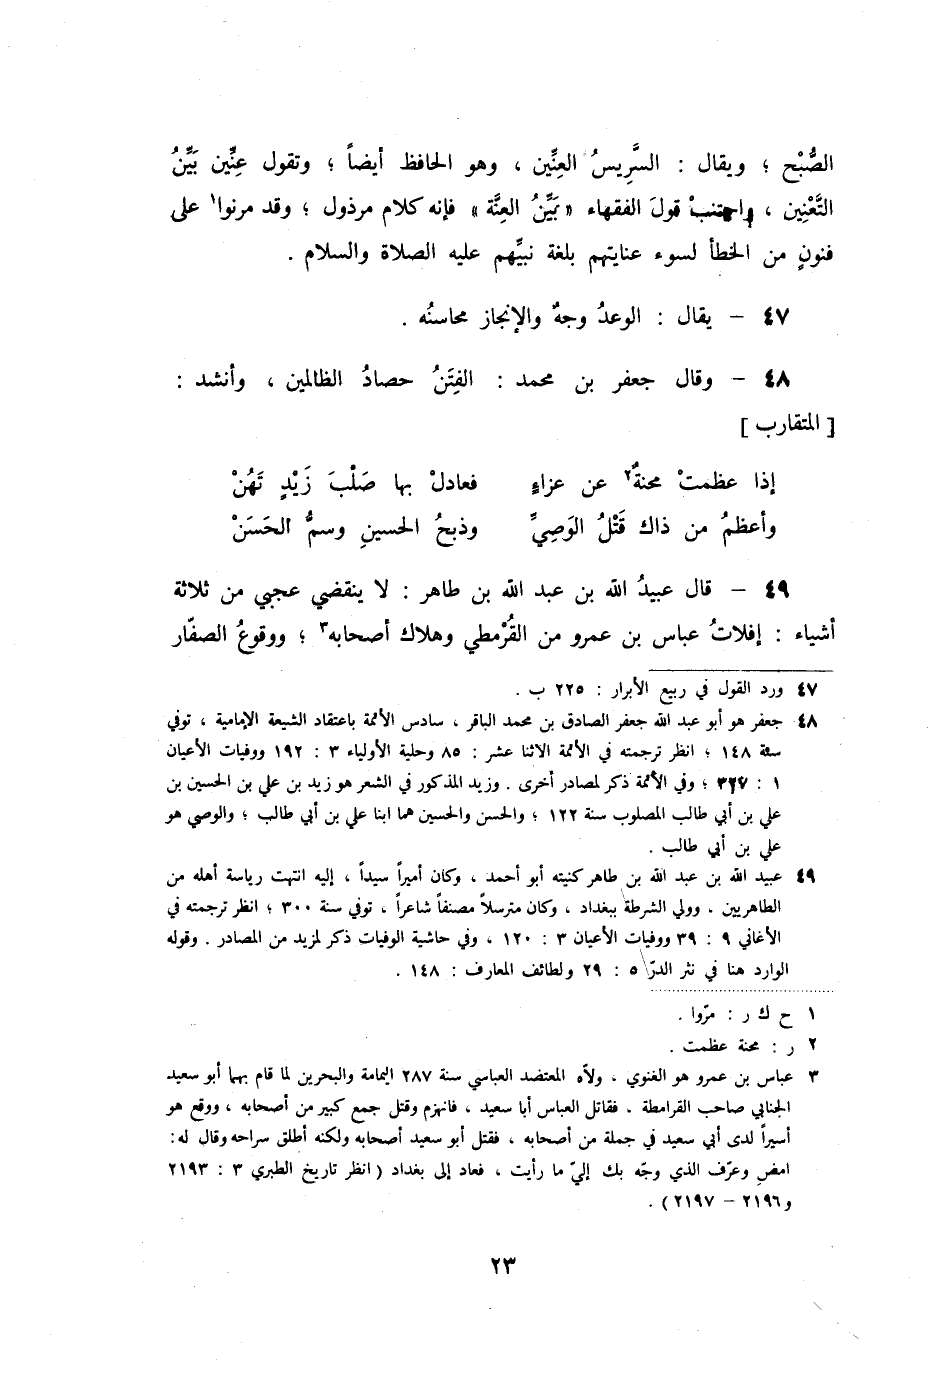 الصُّبْح ؛ ويقال : السَّرِيسُ العِنِّين ، وهو الحافظ أيضاً ؛ وتقول عِنِّين بَيِّنُ
التَّعْنِين ، واجتنبْ قولَ الفقهاء « بَيِّنُ العِنَّة » فإنه كلام مرذول ؛ وقد مرنوا١ على
فنونٍ من الخطأ لسوء عنايتهم بلغة نبيِّهم عليه الصلاة والسلام .
٤٧ – يقال : الوعدُ وجهٌ والإنجاز محاسنُه .
٤٨ – وقال جعفر بن محمد : الفِتَنُ حصادُ الظالمين ، وأنشد :
[ المتقارب ]
إذا عظمتْ محنةٌ٢ عن عزاءٍ فعادلْ بها صَلْبَ زَيْدٍ تَهُنْ
وأعظمُ من ذاك قَتْلُ الوَصِيِّ وذبحُ الحسينِ وسمُّ الحَسَنْ
٤٩ – قال عبيدُ الله بن عبد الله بن طاهر : لا ينقضي عجبي من ثلاثة
أشياء : إفلاتُ عباس بن عمرو من القُرْمطي وهلاك أصحابه٣ ؛ ووقوعُ الصفّار
٤٧ ورد القول في ربيع الأبرار : ٢٢٥ ب .
٤٨ جعفر هو أبو عبد الله جعفر الصادق بن محمد الباقر ، سادس الأئمة باعتقاد الشيعة الإمامية ، توفي
سنة ١٤٨ ؛ انظر ترجمته في الأئمة الاثنا عشر : ٨٥ وحلية الأولياء ٣ : ١٩٢ ووفيات الأعيان
١ : ٣٢٧ ؛ وفي الأئمة ذكر لمصادر أخرى . وزيد المذكور في الشعر هو زيد بن علي بن الحسين بن
علي بن أبي طالب المصلوب سنة ١٢٢ ؛ والحسن والحسين هما ابنا علي بن أبي طالب ؛ والوصي هو
علي بن أبي طالب .
٤٩ عبيد الله بن عبد الله بن طاهر كنيته أبو أحمد ، وكان أميراً سيداً ، إليه انتهت رياسة أهله من
الطاهريين . وولي الشرطة ببغداد ، وكان مترسلاً مصنفاً شاعراً ، توفي سنة ٣٠٠ ؛ انظر ترجمته في
الأغاني ٩ : ٣٩ ووفيات الأعيان ٣ : ١٢٠ ، وفي حاشية الوفيات ذكر لمزيد من المصادر . وقوله
الوارد هنا في نثر الدرّ ٥ : ٢٩ ولطائف المعارف : ١٤٨ .
١ ح ك ر : مرّوا .
٢ ر : محنة عظمت .
٣ عباس بن عمرو هو الغنوي ، ولاّه المعتضد العباسي سنة ٢٨٧ اليمامة والبحرين لما قام بهما أبو سعيد
الجنابي صاحب القرامطة . فقاتل العباس أبا سعيد ، فانهزم وقتل جمع كبير من أصحابه ، ووقع هو
أسيراً لدى أبي سعيد في جملة من أصحابه ، فقتل أبو سعيد أصحابه ولكنه أطلق سراحه وقال له :
امضِ وعرّف الذي وجّه بك إليّ ما رأيت ، فعاد إلى بغداد ( انظر تاريخ الطبري ٣ : ٢١٩٣
و٢١٩٦ – ٢١٩٧ ) .
٢٣